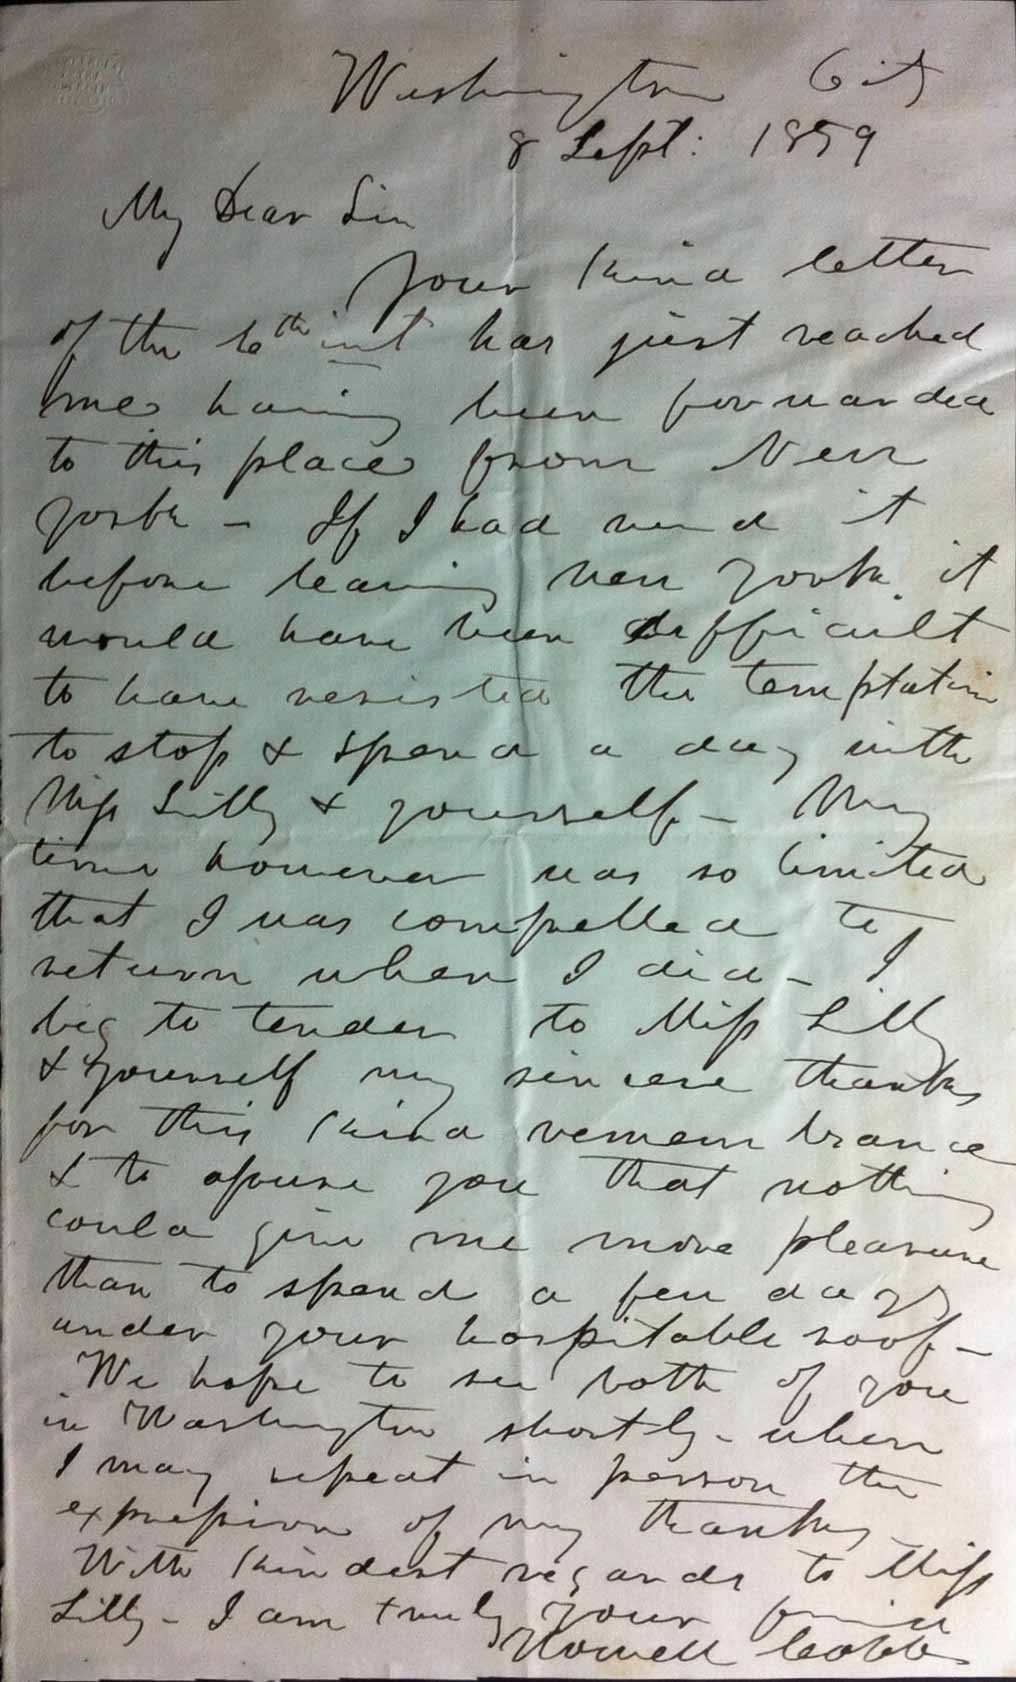 Washington City
8 Sept: 1859
My Dear Sir
Your kind letter
of the 6th inst has just reached
me having been forwarded
to this place from New
York - If I had rec'd it
before leaving New York it
would have been difficult
to have resisted the temptation
to stop & spend a day with
Miss Lilly & yourself - My
time however was so limited
that I was compelled to
return when I did - I
beg to tender to Miss Lilly
& yourself my sincere thanks
for this kind remembrance
& to assure you that nothing
could give me more pleasure
than to spend a few days
under your hospitable roof -
We hope to see both of you
in Washington shortly - when
I may repeat in person the
expression of my thanks
With kindest regards to Miss
Lilly - I am truly your friend
Howell Cobb